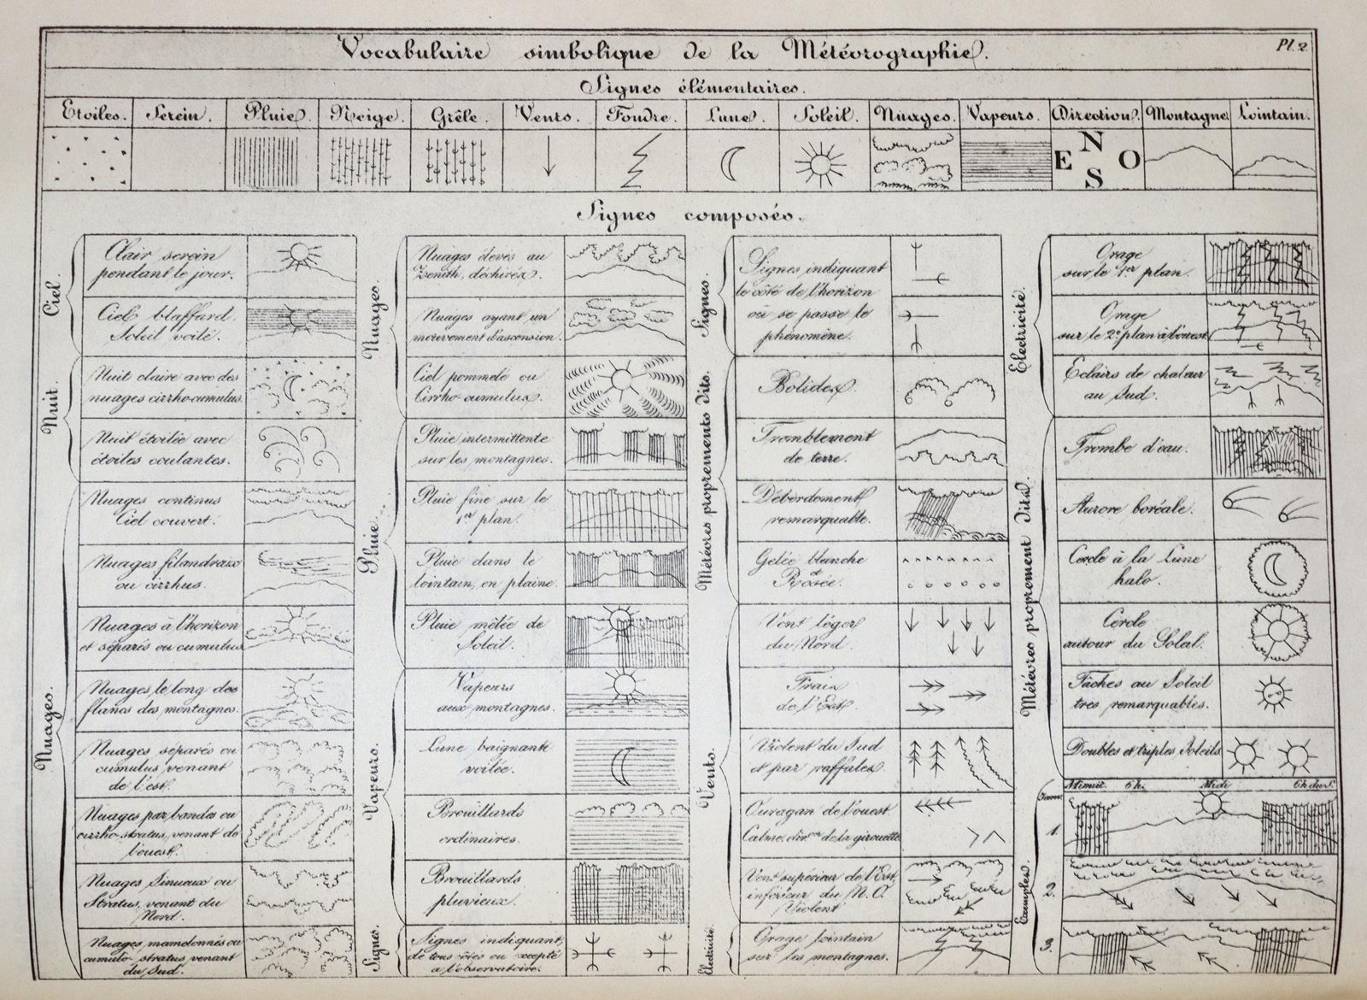 Vocabulaire simbolique de la Météorographie.
Pl. 2
Signes élémentaires.
Etoiles. Serein. Pluie. Neige. Grêle. Vents. Foudre. Lune. Soleil. Nuages. Vapeurs. Direction. Montagne Lointain.
N
E O
S
Signes composés.
Ciel.
Clair serein
pendant le jour.
Ciel blaffard.
Soleil voilé.
Nuit.
Nuit claire avec des
nuages cirrho-cumulus
Nuit étoilée avec
étoiles coulantes.
Nuages.
Nuages continus
Ciel couvert.
Nuages filandreux
ou cirrhus.
Nuages à l'horizon
et séparés ou cumulus
Nuages le long des
flancs des montagnes.
Nuages séparés ou
cumulus venant
de l'est.
Nuages par bandes ou
cirrho-stratus, venant de
l'ouest.
Nuages Sinueux ou
Stratus, venant du
Nord.
Nuages mamelonnés ou
cumulo-stratus venant
du Sud.
Nuages.
Nuages élevés au
Zenith, déchirés.
Nuages ayant un
mouvement d'ascension.
Ciel pommelé ou
Cirrho-cumulus.
Pluie.
Pluie intermittente
sur les montagnes.
Pluie fine sur le
1er plan.
Pluie dans le
lointain, en plaine.
Pluie mêlée de
Soleil.
Vapeurs.
Vapeurs
aux montagnes.
Lune baignante
voilée.
Brouillards
ordinaires.
Brouillards
pluvieux.
Signes.
Signes indiquant
de tous côtés ou excepté
a l'observatoire.
Signes.
Signes indiquant
le côté de l'horizon
où se passe le
phénomène.
Météores proprements dits.
Bolides.
Tremblement
de terre.
Débordement
remarquable.
Gelée blanche
et
Rosée.
Vents.
Vent léger
du Nord.
Frais
de l'Est.
Violent du Sud
et par raffales.
Ouragan de l'ouest.
Calme, don de la girouette
Vent supérieur de l'Est,
inférieur du N.O.
Violent
Electricité.
Orage lointain
sur les montagnes.
Electricité.
Orage
sur le 1er plan.
Orage
sur le 2e plan à l'ouest
Eclairs de chaleur
au Sud.
Météores proprement dits.
Trombe d'eau.
Aurore boréale.
Cercle à la Lune
halo.
Cercle
autour du Soleil.
Taches au Soleil
tres remarquables.
Doubles et triples Soleils
Exemples.
Minuit. 6h. Midi 6h. du S.
1.
2.
3.